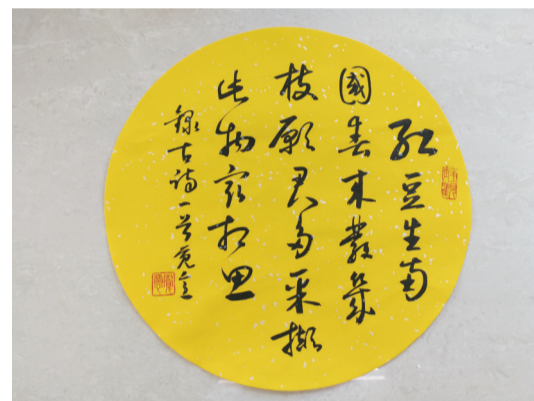 红豆生南
國春来發幾
枝願君多采擷
此物最相思
録古詩一首